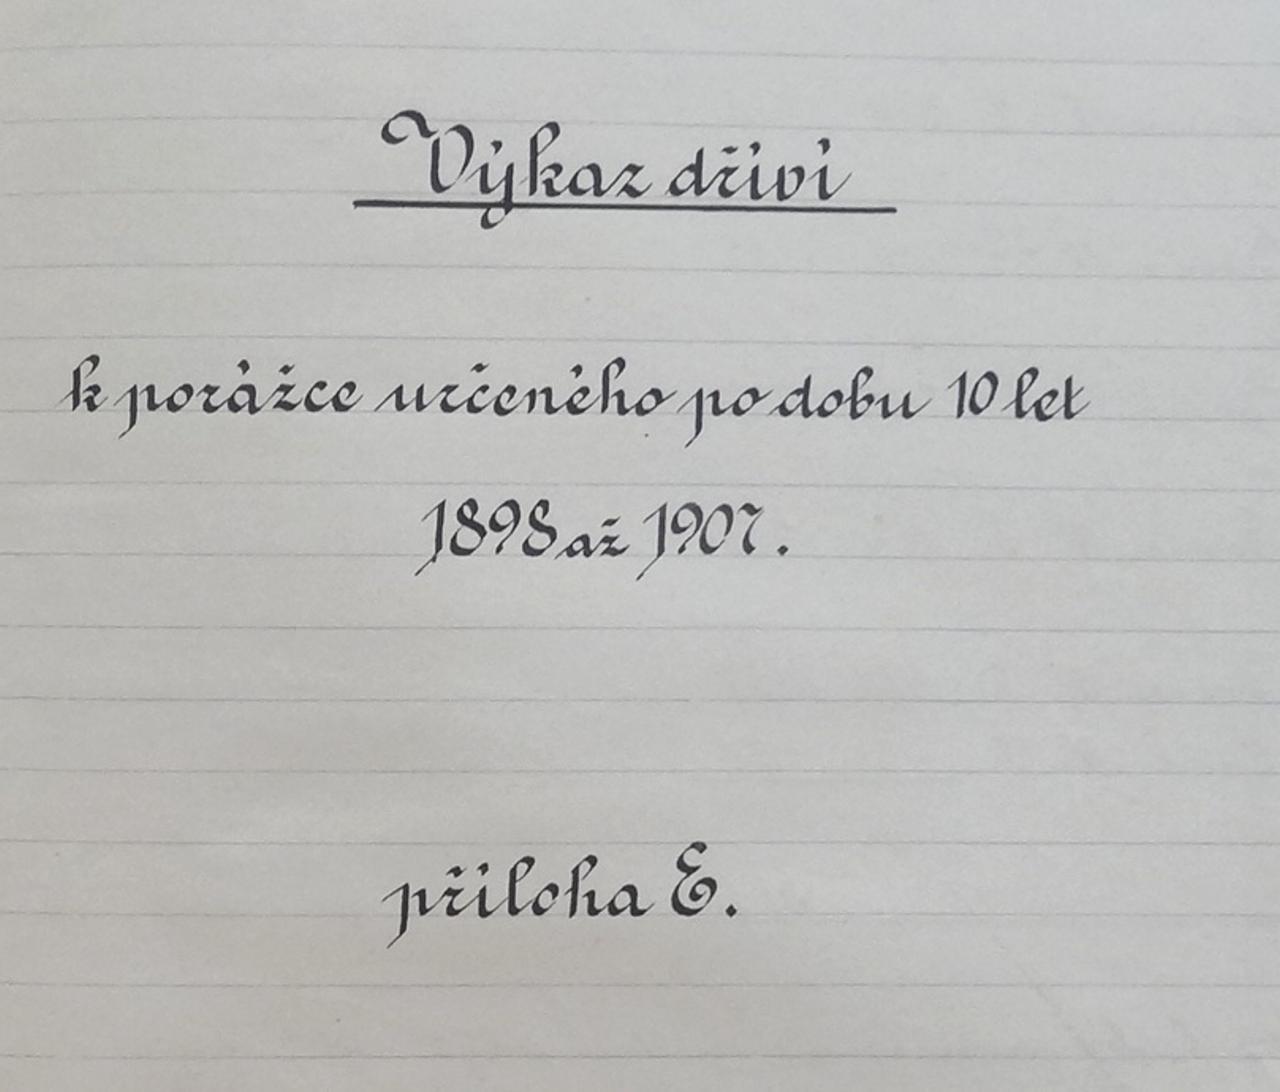 Výkaz dříví
k porážce určeného po dobu 10 let
1898 až 1907.
příloha E.